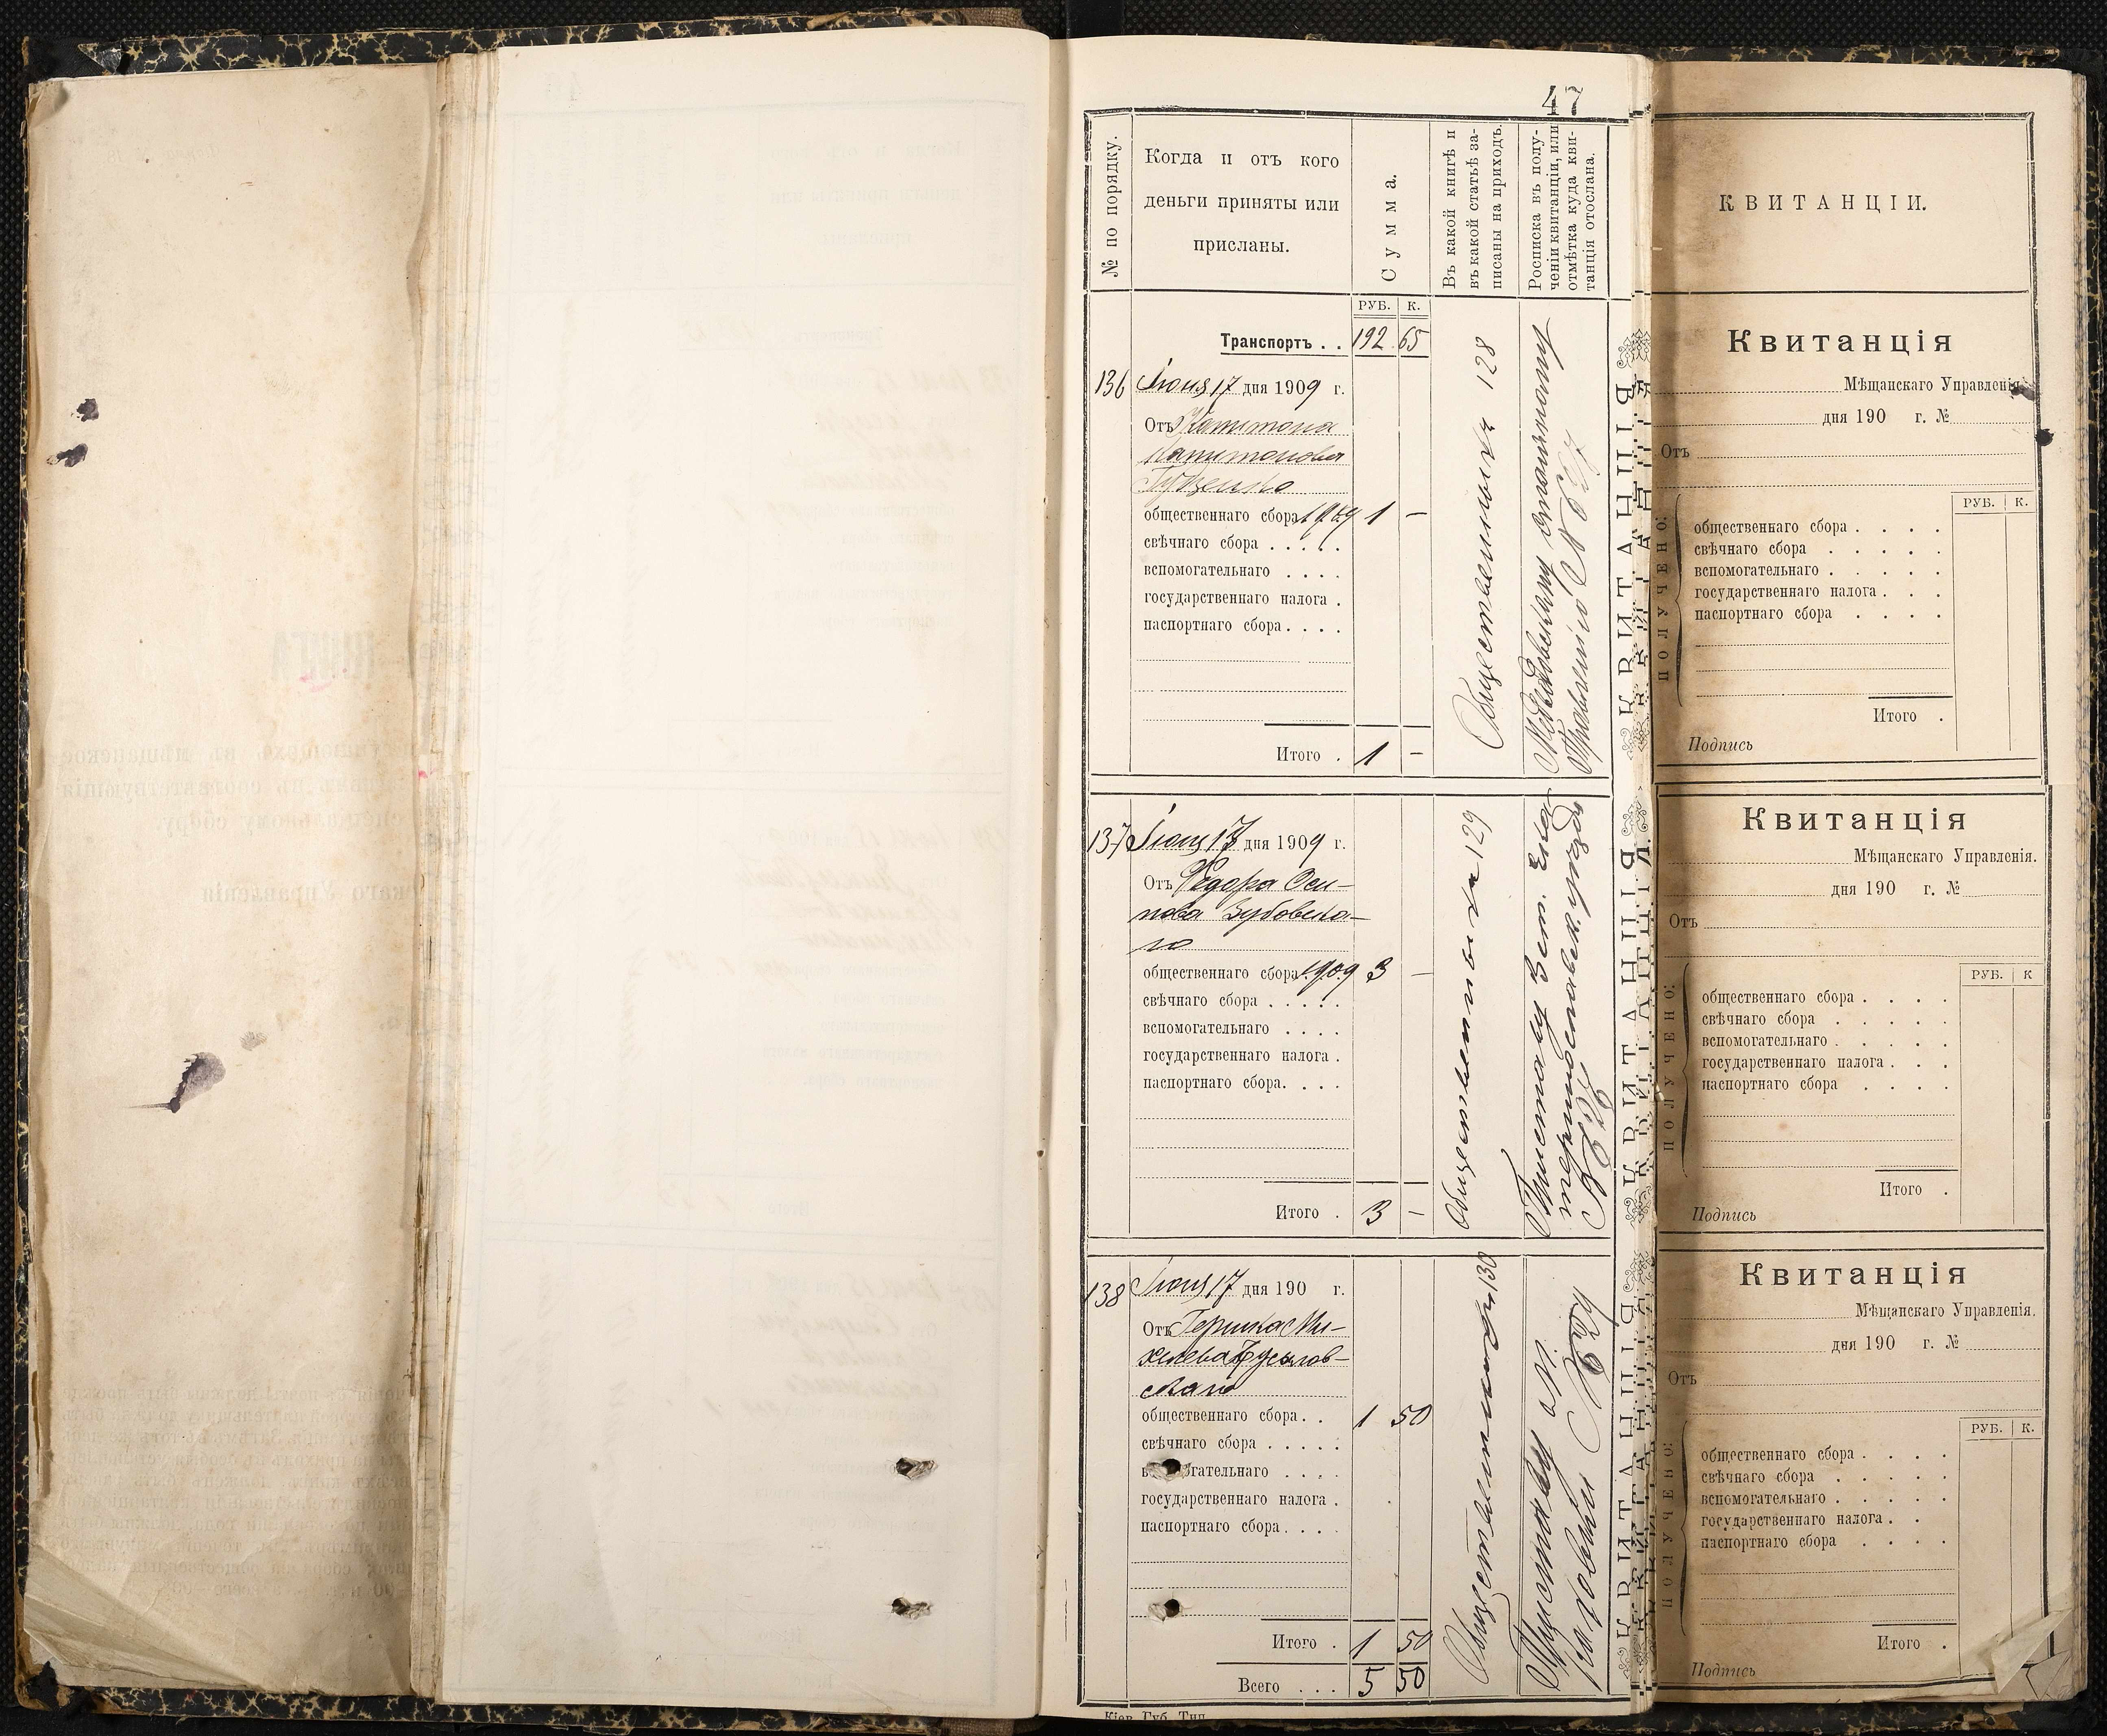 47
№ по порядку.
Когда и отъ кого
деньги приняты или
присланы.
Сумма.
Въ какой книгѣ и
въ какой статьѣ за-
писаны на приходъ.
Росписка въ полу-
ченіи квитанціи, или
отмѣтка куда кви-
танція отослана.
РУБ. К.
Транспортъ . . 192 65
136 Іюня 17 дня 1909 г.
Отъ Капитона
Капитонова
Гуденко
общественнаго сбора 1909 1 —
свѣчнаго сбора . . . . .
вспомогательнаго . . . .
государственнаго налога .
паспортнаго сбора . . . .
Итого . 1 —
128
Правленію №
137 Іюня 17 дня 1909 г.
Отъ Федора Оси-
пова Зубовска-
го
общественнаго сбора 1909 3 —
свѣчнаго сбора . . . . .
вспомогательнаго . . . .
государственнаго налога .
паспортнаго сбора. . . .
Итого . 3 —
129
Приставу
138 Іюня 17 дня 190 г.
Отъ Гершка Ми-
хелева
общественнаго сбора. . 1 50
свѣчнаго сбора . . . . .
государственнаго налога .
паспортнаго сбора . . . .
Итого . 1 50
Всего . . . 5 50
130
Приставу
Кіев. Губ. Тип.
КВИТАНЦІЯ
КВИТАНЦІЯ
КВИТАНЦІЯ
КВИТАНЦІИ.
Квитанція
Мѣщанскаго Управленія
дня 190 г. №
Отъ
ПОЛУЧЕНО:
РУБ. К.
общественнаго сбора . . . .
свѣчнаго сбора . . . . .
вспомогательнаго . . . . .
государственнаго налога . . .
паспортнаго сбора . . . .
Итого .
Подпись
Квитанція
Мѣщанскаго Управленія.
дня 190 г. №
Отъ
ПОЛУЧЕНО:
РУБ. К
общественнаго сбора . . . .
свѣчнаго сбора . . . . .
вспомогательнаго . . . . .
государственнаго налога . . .
паспортнаго сбора . . . .
Итого .
Подпись
Квитанція
Мѣщанскаго Управленія.
дня 190 г. №
Отъ
ПОЛУЧЕНО:
РУБ. К.
общественнаго сбора . . . .
свѣчнаго сбора . . . . .
вспомогательнаго . . . . .
государственнаго налога . .
паспортнаго сбора . . . .
Итого .
Подпись